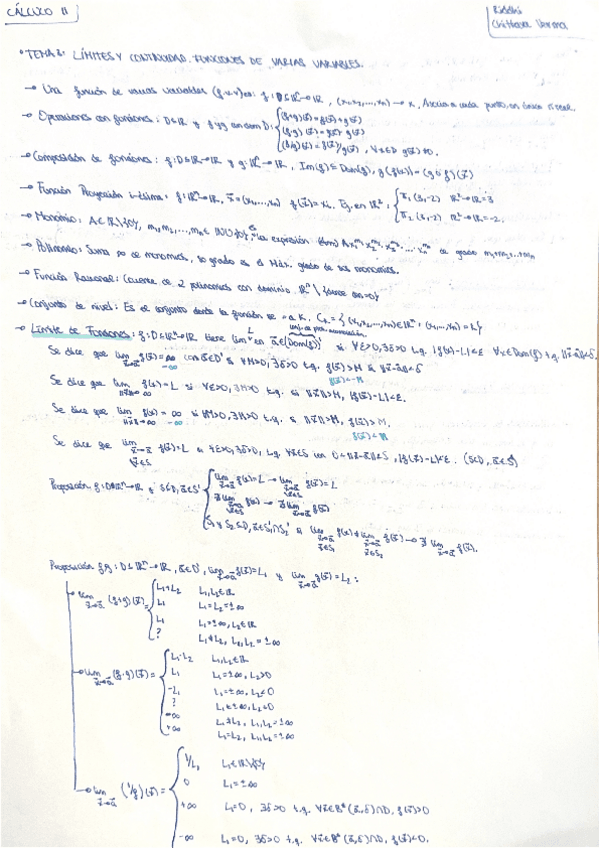 CÁLCULO II
Riddhi
Chittara Verma
• TEMA 3: LÍMITES Y CONTINUIDAD. FUNCIONES DE VARIAS VARIABLES.
→ Una función de varias variables (f.v.v) es: f: D⊆ℝⁿ→ℝ, (x₁,x₂,...,xₙ) → x, Asocia a cada punto un único
→ Operaciones con funciones: D⊆ℝ y f y g con dom D: { (f+g)(x̄)=f(x̄)+g(x̄)
(f·g)(x̄)=f(x̄)·g(x̄)
(f/g)(x̄)=f(x̄)/g(x̄), ∀x∈D g(x̄)≠0.
→ Composición de funciones: f: D⊆ℝⁿ→ℝ y g: ℝ→ℝ, Im(f)⊆Dom(g), g(f(x̄))=(g∘f)(x̄)
→ Función Proyección i-ésima: f: ℝⁿ→ℝ, x̄=(x₁,...,xₙ) f(x̄)=xᵢ. Eg. en ℝ², { π₁(3,-2) ℝ²→ℝ=3
π₂(3,-2) ℝ²→ℝ=-2.
→ Monomio: A∈ℝ\{0}, m₁,m₂,...,mₙ∈ℕ∪{0} es la expresión
→ Polinomio: Suma de monomios, su grado es el Máx. grado de sus monomios.
→ Función Racional: Cociente de 2 polinomios con dominio ℝⁿ\{
→ Conjunto de nivel: Es el conjunto donde la función es = a k. Cₖ={(x₁,x₂,...,xₙ)∈ℝⁿ: f(x₁,...,xₙ)=k}
→ Límite de Funciones: f: D⊆ℝⁿ→ℝ tiene lím L en ā∈(Dom(f))' si ∀ε>0, ∃δ>0 t.q. |f(x̄)-L|<ε ∀x∈Dom(f) t.q. ||x̄-ā||<δ.
Se dice que lim x̄→ā f(x̄)=∞ con ā∈D' si ∀M>0, ∃δ>0 t.q. f(x̄)>M si ||x̄-ā||<δ
-∞ f(x̄)<-M
Se dice que lim ||x̄||→∞ f(x)=L si ∀ε>0, ∃M>0 t.q. si ||x̄||>M, |f(x̄)-L|<ε.
Se dice que lim ||x̄||→∞ f(x)=∞ si ∀M>0, ∃H>0 t.q. si ||x̄||>H, f(x̄)>M.
-∞
Se dice que lim x̄→ā x̄∈S f(x̄)=L si ∀ε>0, ∃δ>0, t.q. ∀x̄∈S con 0<||x̄-ā||<δ, |f(x̄)-L|<ε. (S⊂D, ā∈S')
Proposición f: D⊆ℝⁿ→ℝ y S⊆D, ā∈S' { lim x̄→ā f(x̄)=L → lim x̄→ā x̄∈S f(x̄)=L
∄ lim x̄→ā x̄∈S f(x̄) → ∄ lim x̄→ā f(x̄)
S₁ y S₂⊆D, ā∈S₁'∩S₂' si lim x̄→ā x̄∈S₁ f(x̄) ≠ lim x̄→ā x̄∈S₂ f(x̄) → ∄ lim x̄→ā f(x̄).
Proposición f,g: D⊆ℝⁿ→ℝ, ā∈D', lim x̄→ā f(x̄)=L₁ y lim x̄→ā g(x̄)=L₂:
→ lim x̄→ā (f+g)(x̄)= { L₁+L₂ L₁,L₂∈ℝ
L₁ L₁=L₂=±∞
L₁ L₁=±∞, L₂∈ℝ
? L₁≠L₂, L₁,L₂=±∞
→ lim x̄→ā (f·g)(x̄)= { L₁·L₂ L₁,L₂∈ℝ
L₁ L₁=±∞, L₂>0
-L₁ L₁=±∞, L₂<0
? L₁=±∞, L₂=0
-∞ L₁≠L₂, L₁,L₂=±∞
+∞ L₁=L₂, L₁,L₂=±∞
→ lim x̄→ā (1/f)(x̄)= { 1/L₁ L₁∈ℝ\{0}
0 L₁=±∞
+∞ L₁=0, ∃δ>0 t.q. ∀x̄∈B*(ā,δ)∩D, f(x̄)>0
-∞ L₁=0, ∃δ>0 t.q. ∀x̄∈B*(ā,δ)∩D, f(x̄)<0.